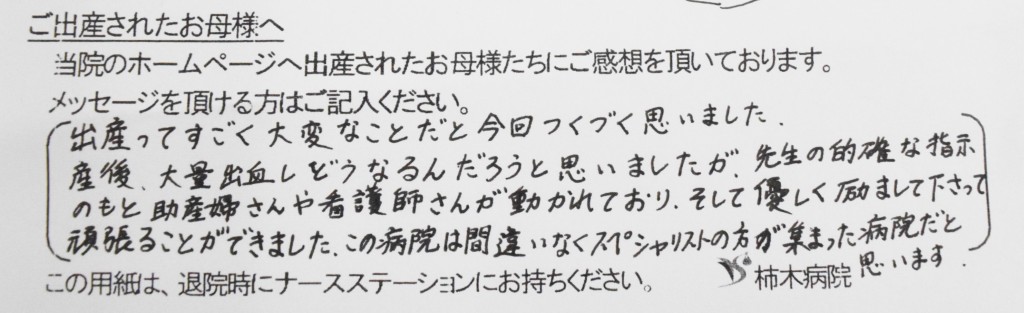 ご出産されたお母様へ
当院のホームページへ出産されたお母様たちにご感想を頂いております。
メッセージを頂ける方はご記入ください。
出産ってすごく大変なことだと今回つくづく思いました．
産後、大量出血しどうなるんだろうと思いましたが、先生の的確な指示
のもと助産婦さんや看護師さんが動かれており、そして優しく励まして下さって
頑張ることができました、この病院は間違いなくスペシャリストの方が集まった病院だと
思います．
この用紙は、退院時にナースステーションにお持ちください。
柿木病院